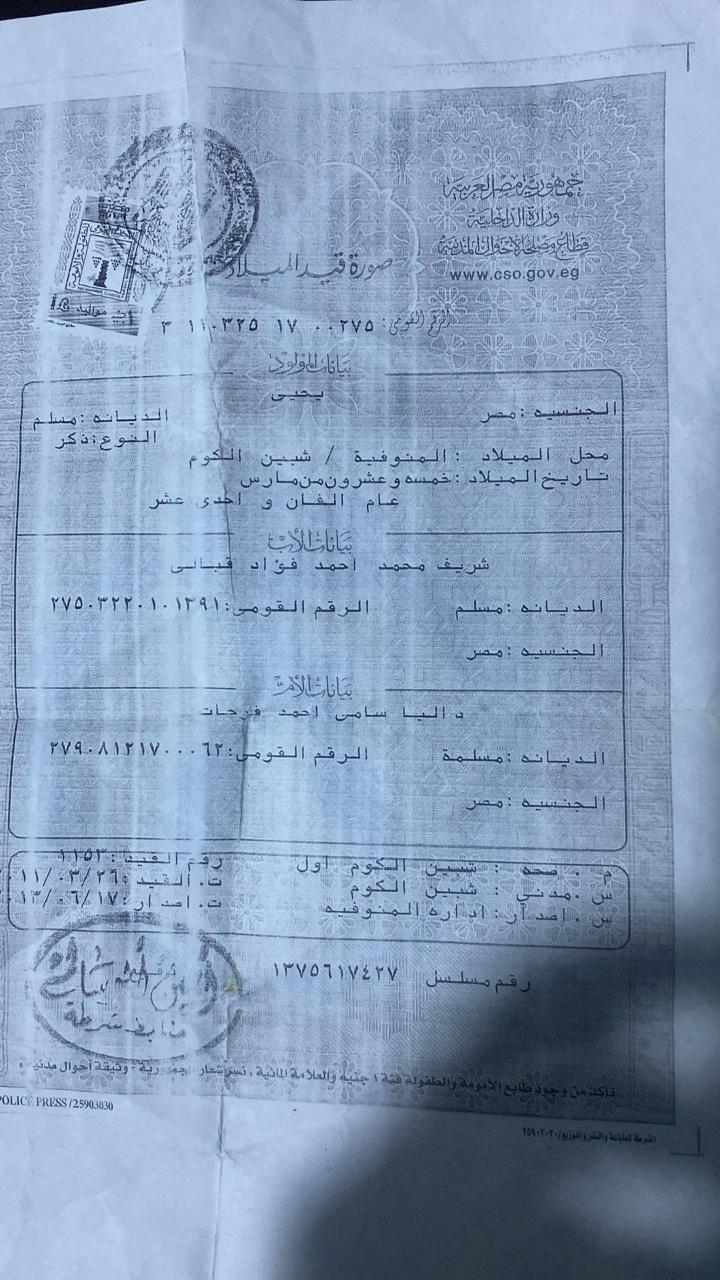 جمهورية مصر العربية
وزارة الداخلية
قطاع مصلحة الأحوال المدنية
www.cso.gov.eg
صورة قيد الميلاد
الرقم القومى: ٣ ١١٠٣٢٥ ١٧ ٠٠٢٧٥
بيانات المولود
يحيى
الجنسيه :مصر
الديانه :مسلم
النوع:ذكر
محل الميلاد : المنوفية / شبين الكوم
تاريخ الميلاد :خمسه وعشرون من مارس
عام الفان و احدى عشر
بيانات الأب
شريف محمد احمد فؤاد قبانى
الديانه :مسلم الرقم القومى:٢٧٥٠٣٢٢٠١٠١٣٩١
الجنسيه :مصر
بيانات الأم
داليا سامى احمد فرحات
الديانه :مسلمة الرقم القومى:٢٧٩٠٨١٢١٧٠٠٠٦٢
الجنسيه :مصر
م . صحه : شبين الكوم اول رقم القيد :١١٥٣
س .مدني : شبين الكوم ت. القيد :١١/٠٣/٢٦
س .اصدار : اداره المنوفيه ت. اصدار :١٣/٠٦/١٧
رقم مسلسل ١٣٧٥٦١٧٤٢٧
ضابط شرطة
تأكد من وجود طابع الأمومة والطفولة فئة ١ جنيه والعلامة المائية ، نسر شعار الجمهورية - وثيقة أحوال مدنية
POLICE PRESS /25903030
الشرطة للطباعة والنشر والتوزيع/٢٥٩٠٣٠٣٠